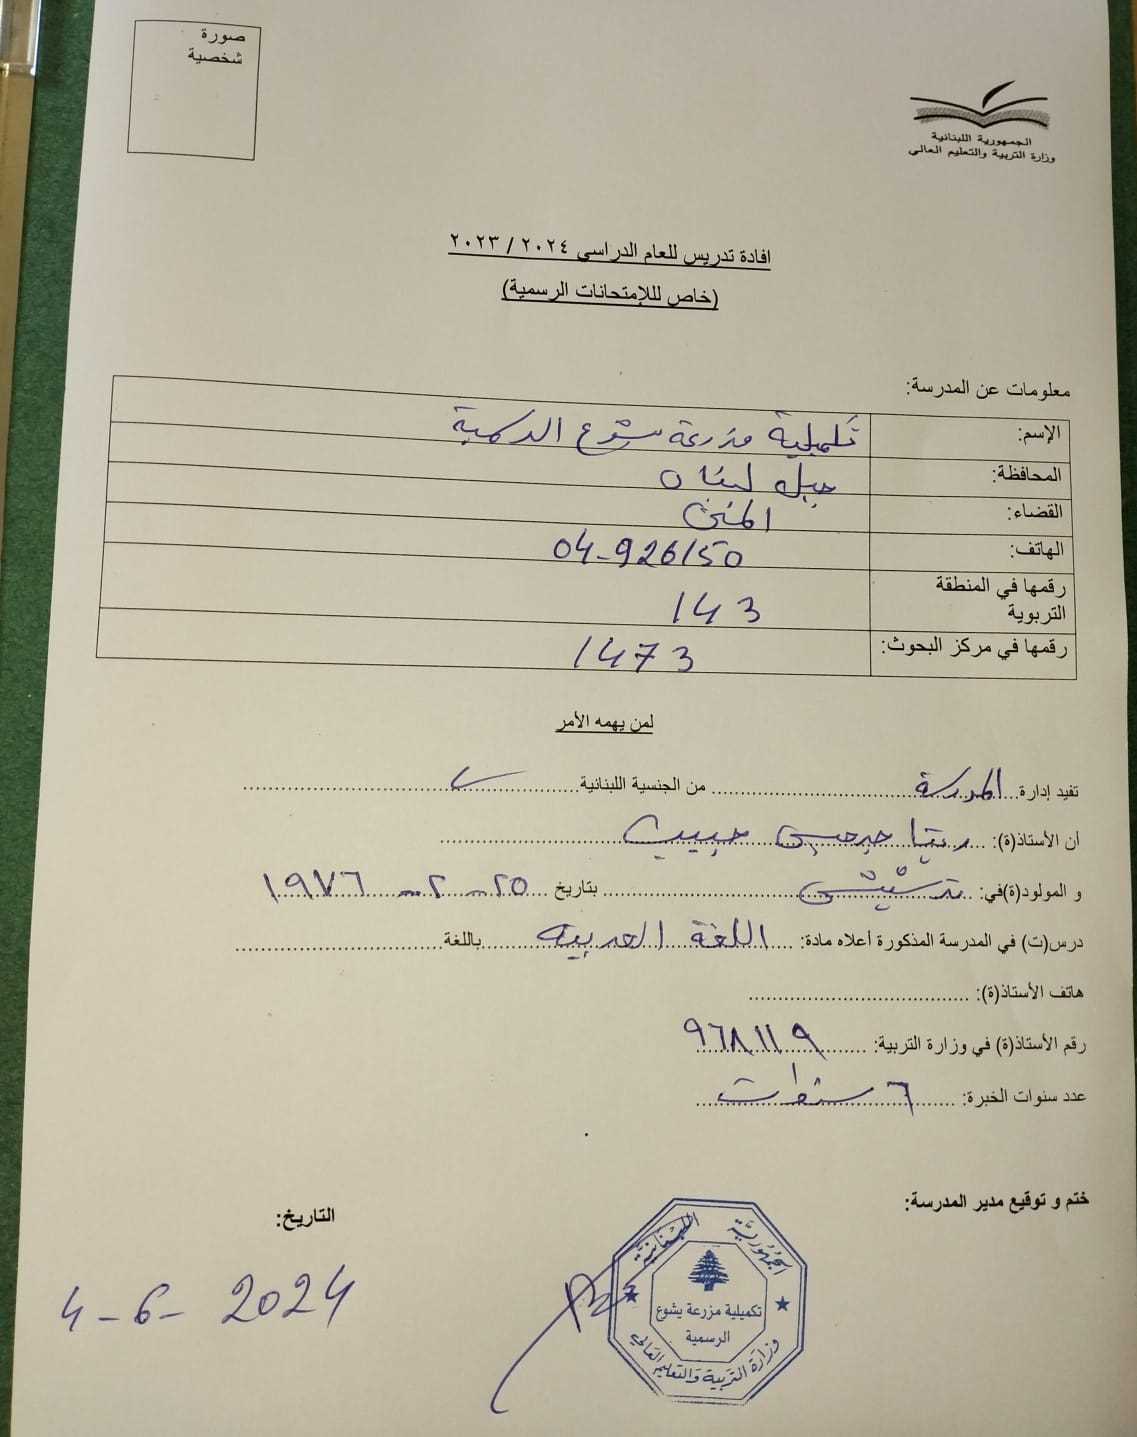 صورة
شخصية
الجمهورية اللبنانية
وزارة التربية والتعليم العالي
افادة تدريس للعام الدراسي ٢٠٢٤ / ٢٠٢٣
(خاص للإمتحانات الرسمية)
معلومات عن المدرسة:
الإسم: تكميلية مزرعة يشوع الرسمية
المحافظة: جبل لبنان
القضاء: المتن
الهاتف: 04-926150
رقمها في المنطقة التربوية 143
رقمها في مركز البحوث: 1473
لمن يهمه الأمر
تفيد إدارة المدرسة من الجنسية اللبنانية
أن الأستاذ(ة): ريتا جرجس حبيب
و المولود(ة)في: ترشيش بتاريخ ٢٥-٢-١٩٧٦
درس(ت) في المدرسة المذكورة أعلاه مادة: اللغة العربية باللغة
هاتف الأستاذ(ة):
رقم الأستاذ(ة) في وزارة التربية: ٩٦٨١١٩
عدد سنوات الخبرة: ٦ سنوات
ختم و توقيع مدير المدرسة:
التاريخ:
4-6-2024
الجمهورية اللبنانية
تكميلية مزرعة يشوع
الرسمية
وزارة التربية والتعليم العالي